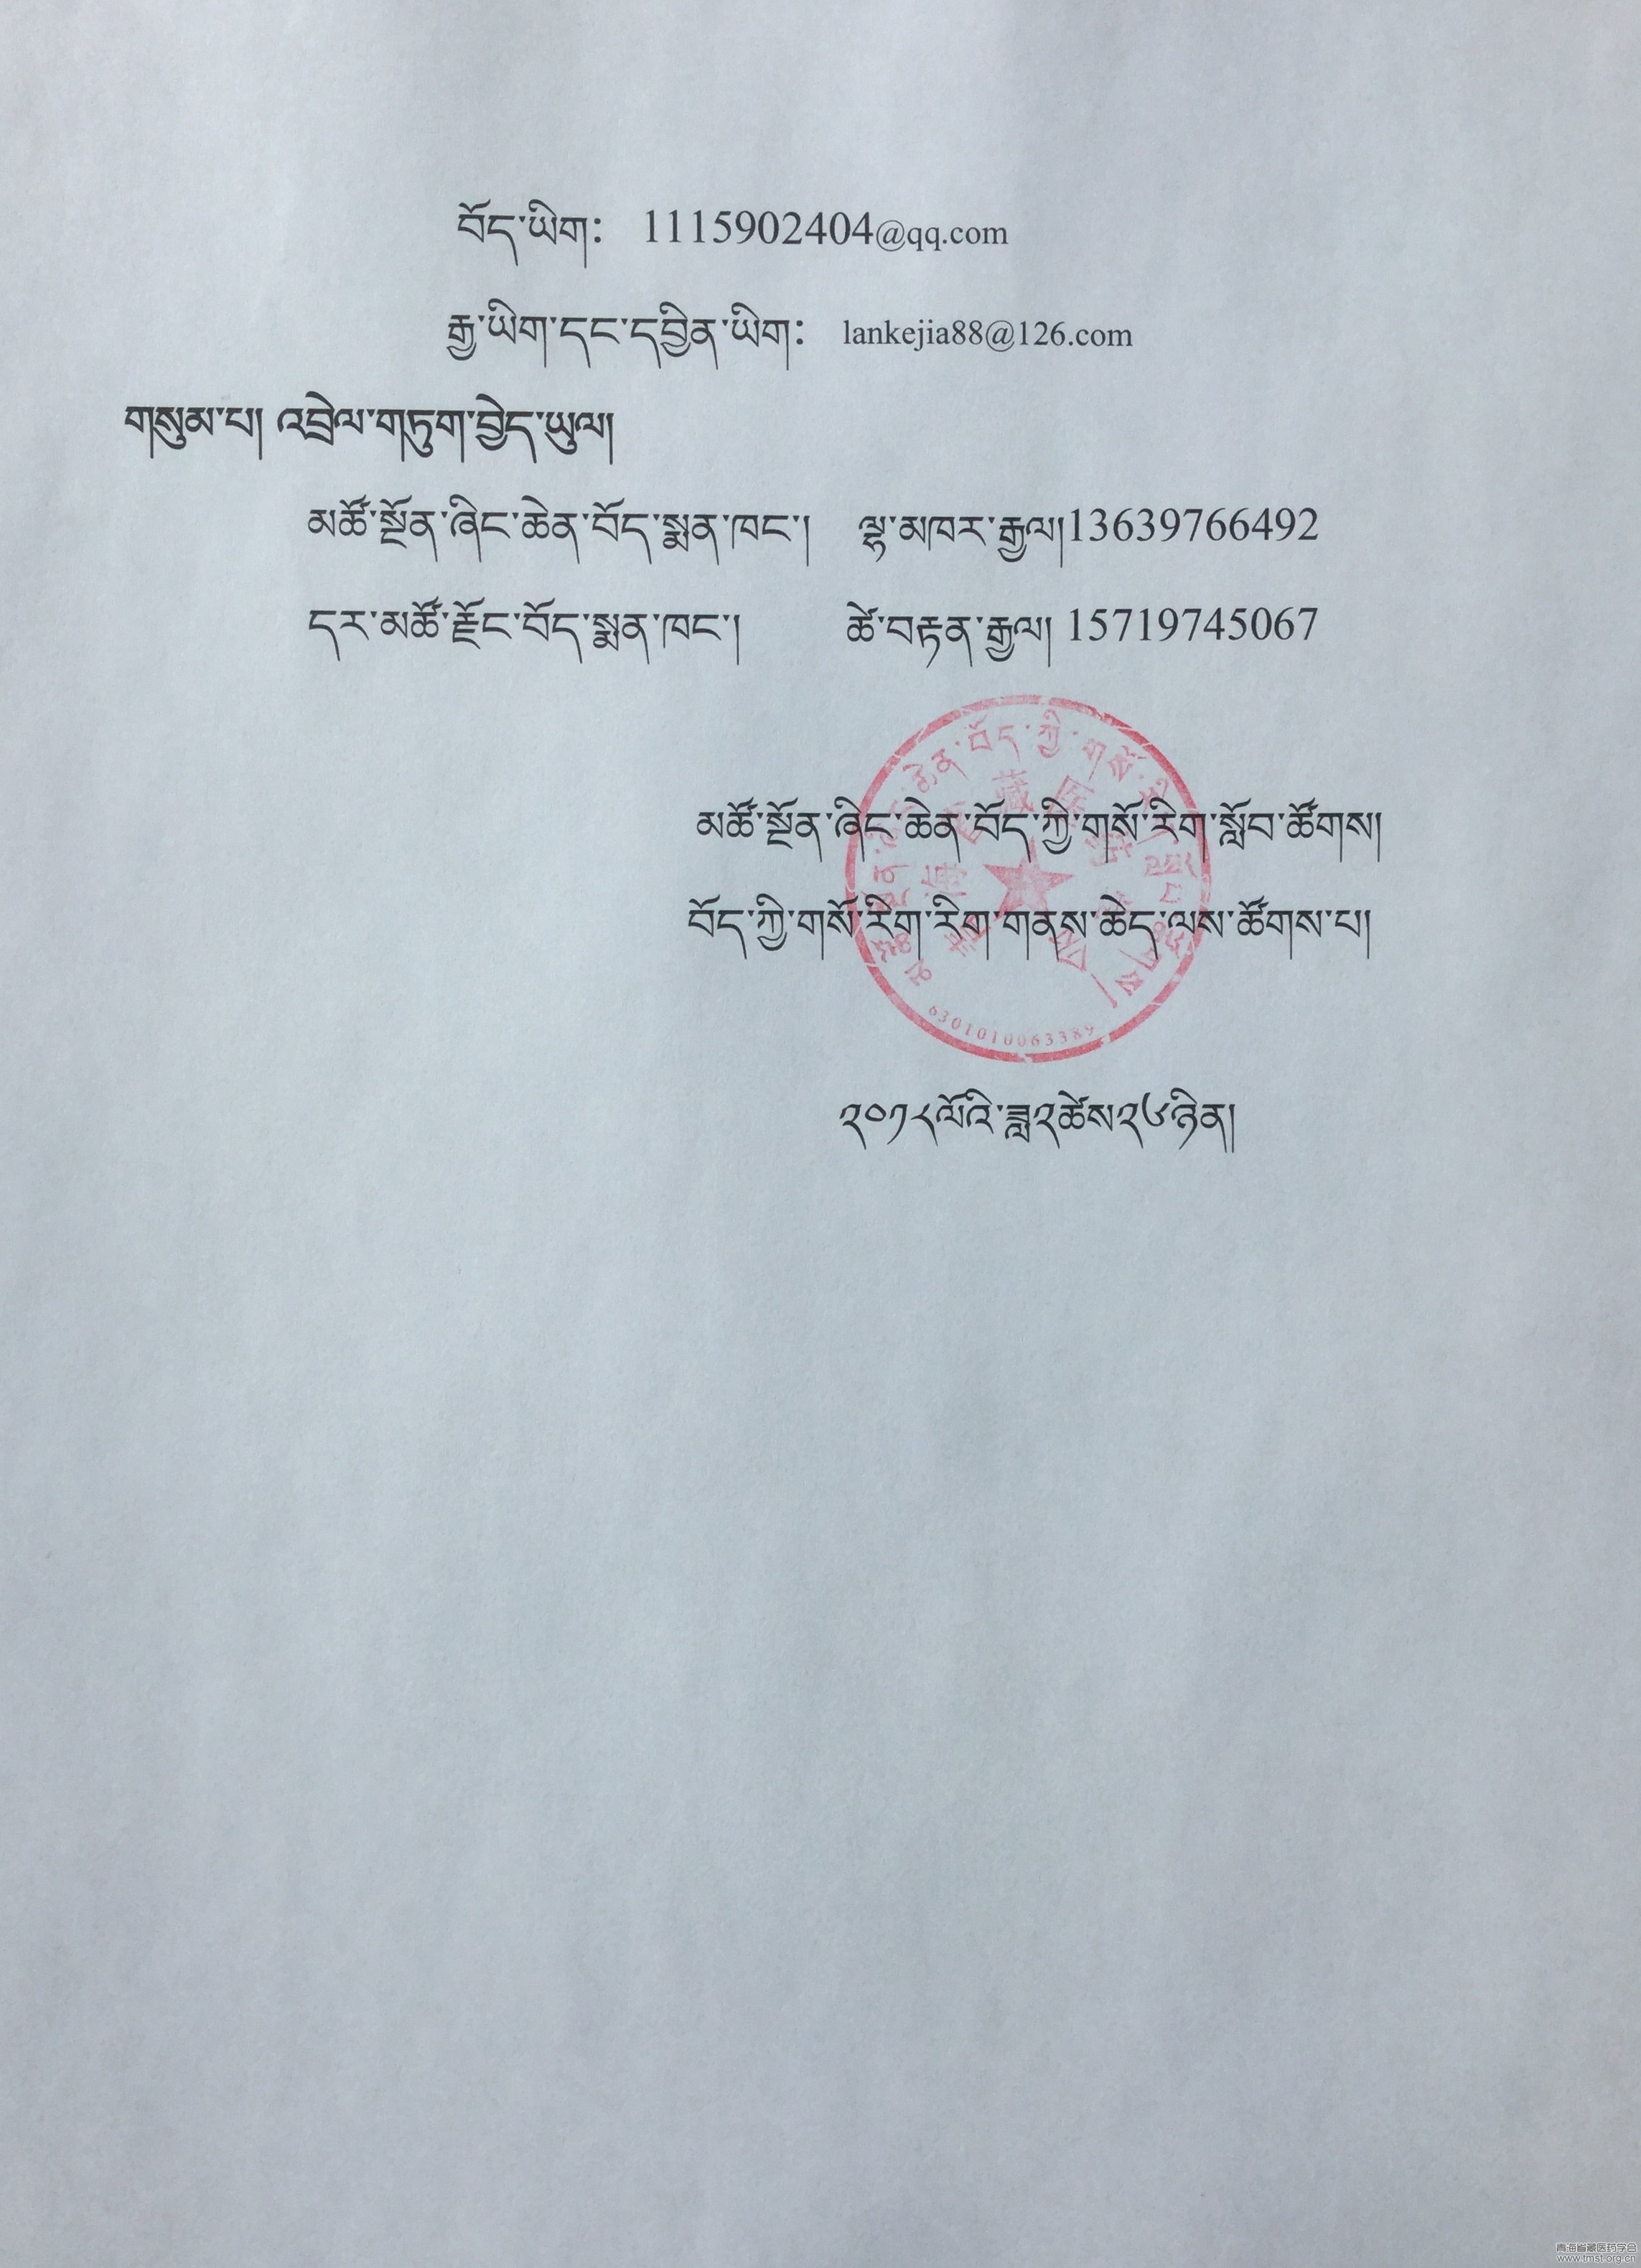 བོད་ཡིག: 1115902404@qq.com
རྒྱ་ཡིག་དང་དབྱིན་ཡིག: lankejia88@126.com
གསུམ་པ། འབྲེལ་གཏུག་བྱེད་ཡུལ།
མཚོ་སྔོན་ཞིང་ཆེན་བོད་སྨན་ཁང་། ལྷ་མཁར་རྒྱལ།13639766492
དར་མཚོ་རྫོང་བོད་སྨན་ཁང་། ཚེ་བརྟན་རྒྱལ། 15719745067
མཚོ་སྔོན་ཞིང་ཆེན་བོད་ཀྱི་གསོ་རིག་སློབ་ཚོགས།
བོད་ཀྱི་གསོ་རིག་རིག་གནས་ཆེད་ལས་ཚོགས་པ།
6301010063389
༢༠༡༨ལོའི་ཟླ༢ཚེས༢༦ཉིན།
青海省藏医药学会
www.tmst.org.cn